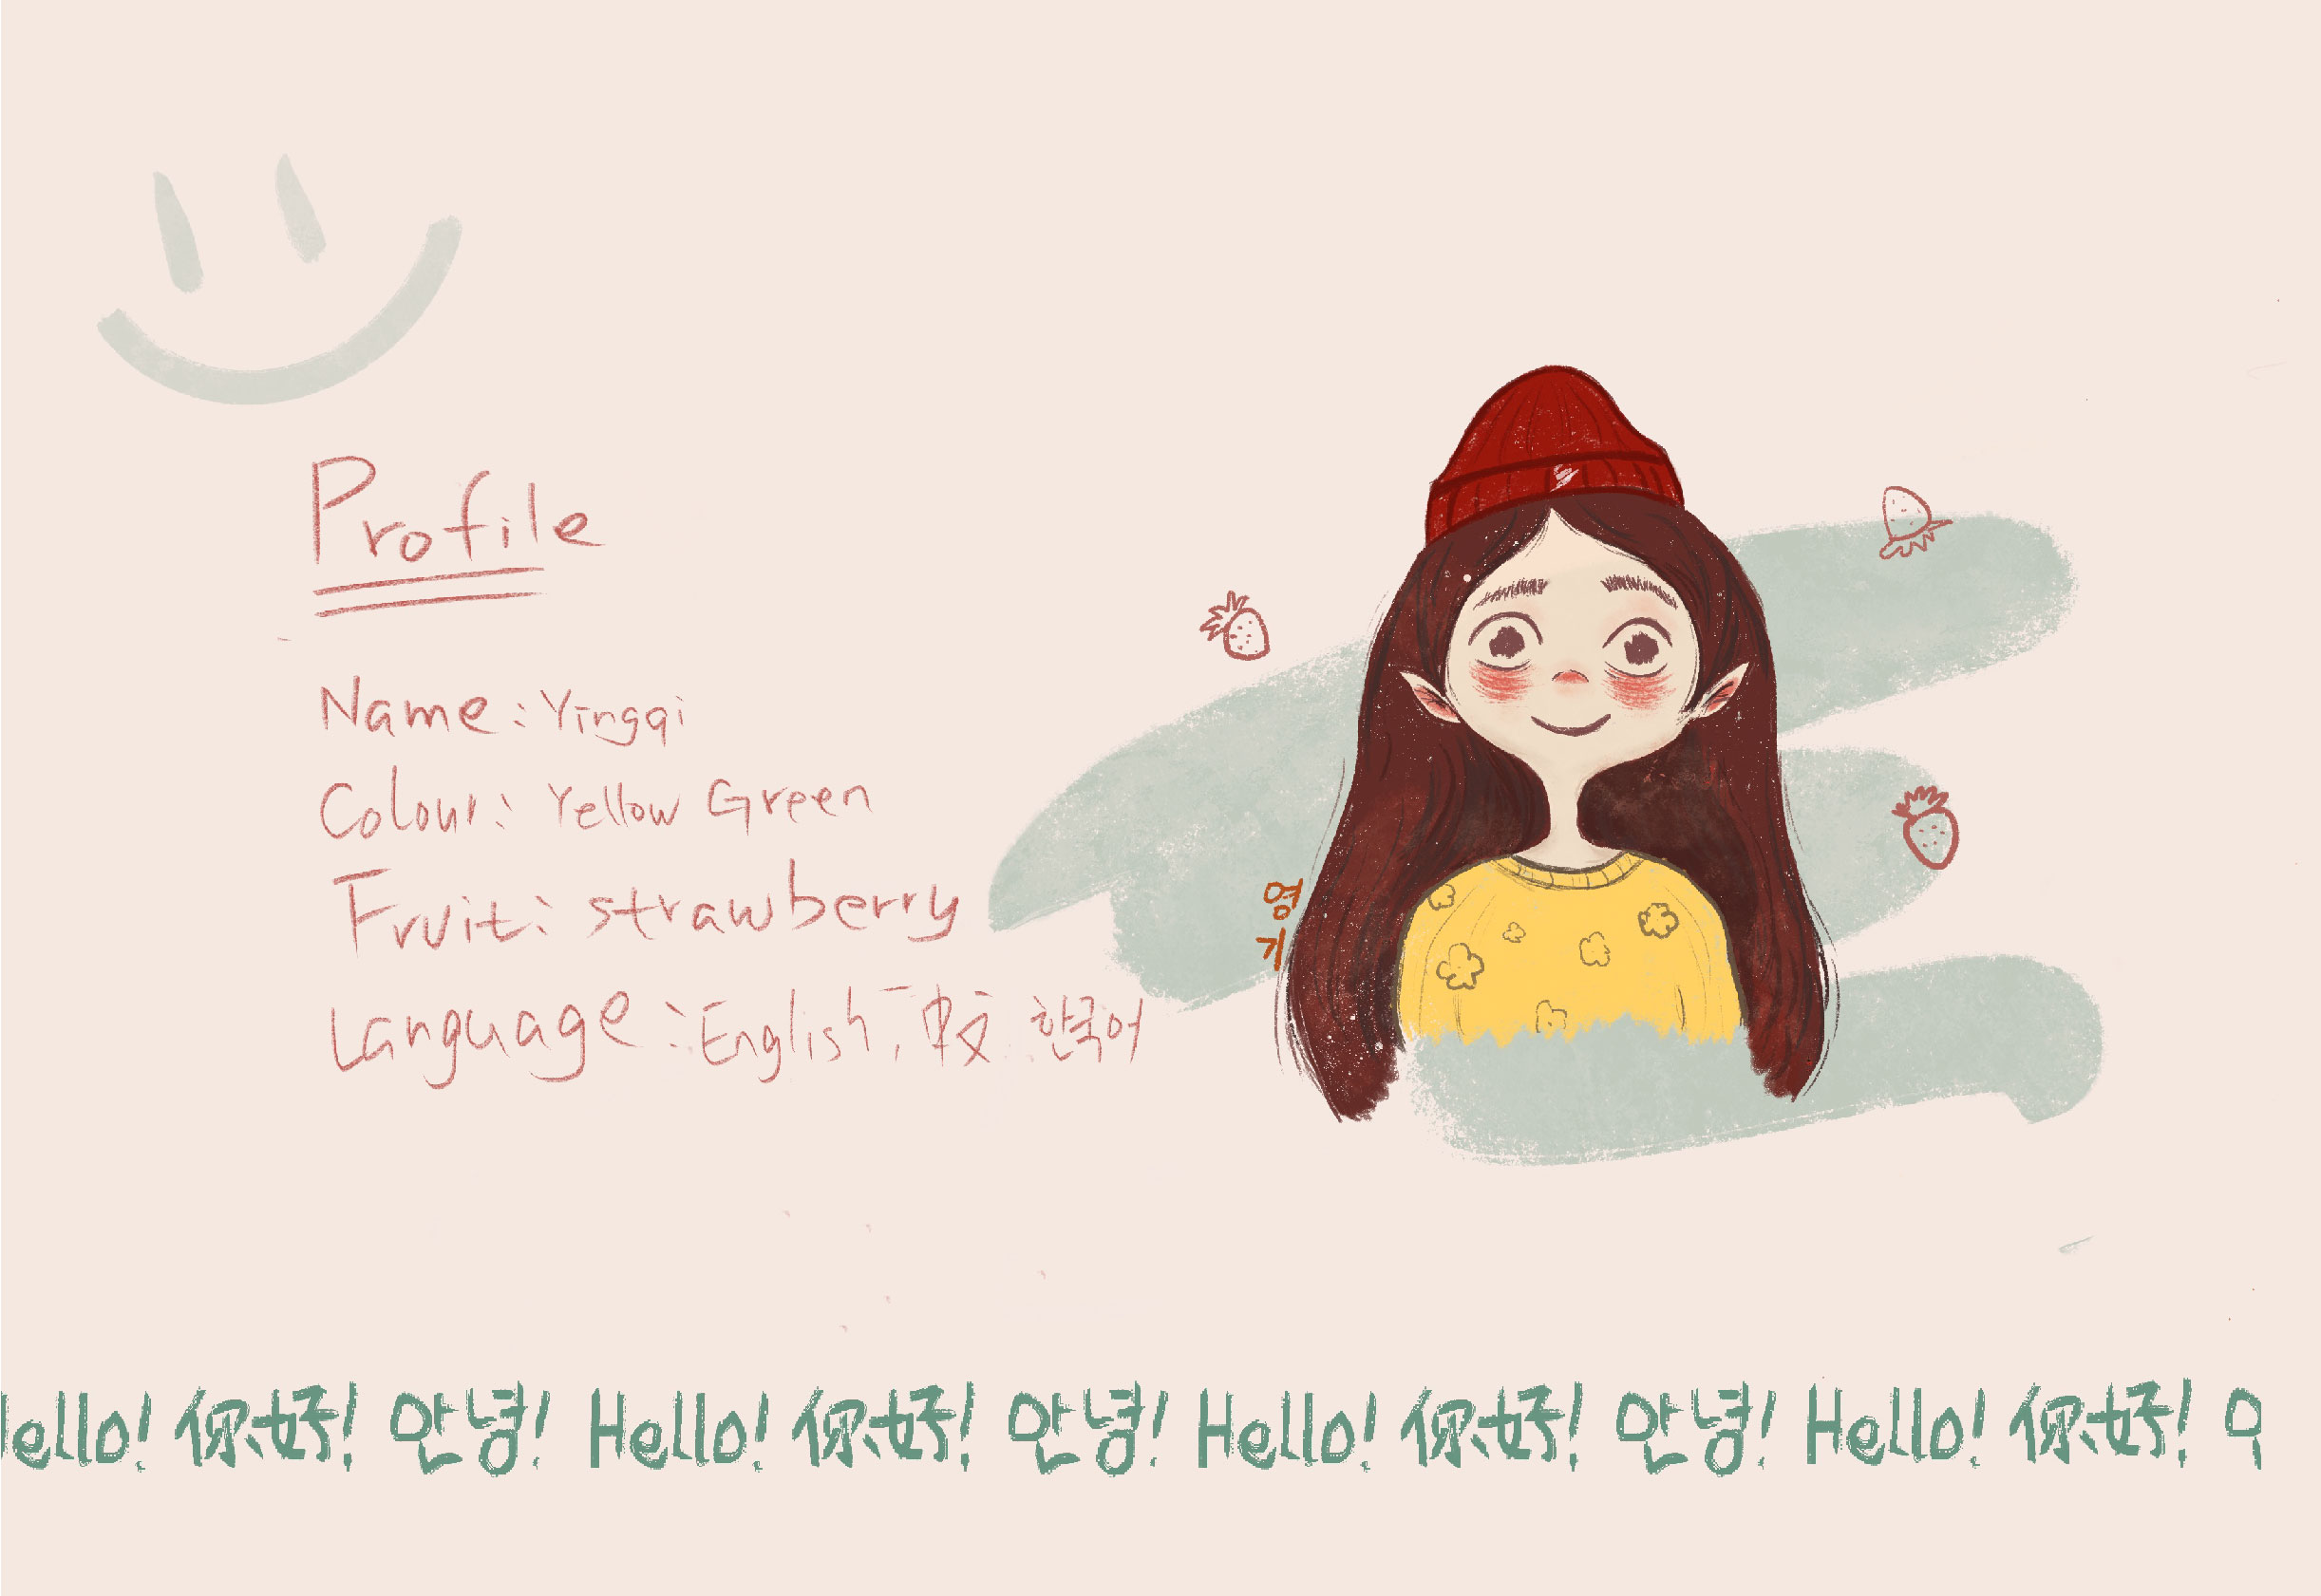 Profile
Name: Yingqi
Colour: Yellow Green
Fruit: strawberry
Language: English, 中文 한국어
영
기
Hello! 你好! 안녕! Hello! 你好! 안녕! Hello! 你好! 안녕! Hello! 你好!